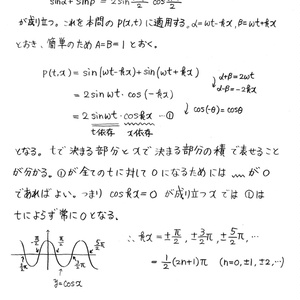 sinα + sinβ = 2sin   cos
が成り立つ。これを本問の P(t,x) に適用する。α=ωt-kx, β=ωt+kx
とおき、簡単のため A=B=1 とおく。
P(t,x) = sin(ωt-kx) + sin(ωt+kx)
α+β=2ωt
α-β=-2kx
= 2sinωt・cos(-kx)
cos(-θ)=cosθ
= 2sinωt・coskx …①
t依存 x依存
となる。tで決まる部分とxで決まる部分の積で表せること
が分かる。①が全てのtに対して0になるためには 〰 が0
であればよい。つまり coskx=0 が成り立つxでは①は
tによらず常に0となる。
∴ kx = ±π/2, ±3/2π, ±5/2π, …
= 1/2(2n+1)π (n=0, ±1, ±2, …)
-π/2 π/2 5/2π
3/2π
y=cosx